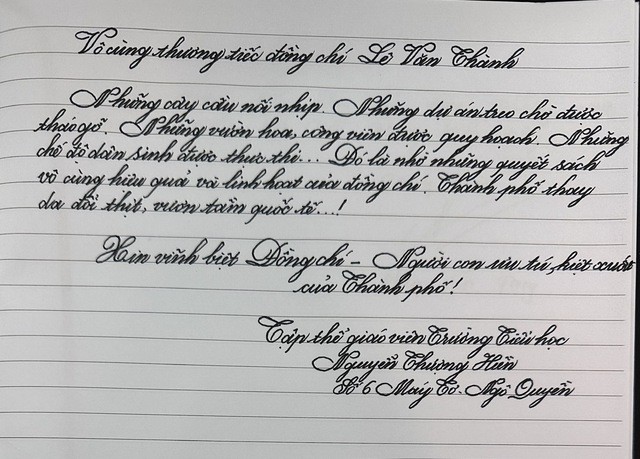 Vô cùng thương tiếc đồng chí Lê Văn Thành
Những cây cầu nối nhịp. Những dự án treo chờ được
tháo gỡ. Những vườn hoa, công viên được quy hoạch. Những
chế độ dân sinh được thực thi... Đó là nhờ những quyết sách
vô cùng hiệu quả và linh hoạt của đồng chí. Thành phố thay
da đổi thịt, vươn tầm quốc tế...!
Xin vĩnh biệt Đồng chí - Người con ưu tú, kiệt xuất
của Thành phố!
Tập thể giáo viên Trường Tiểu học
Nguyễn Thượng Hiền
Số 6 Máy Tơ - Ngô Quyền